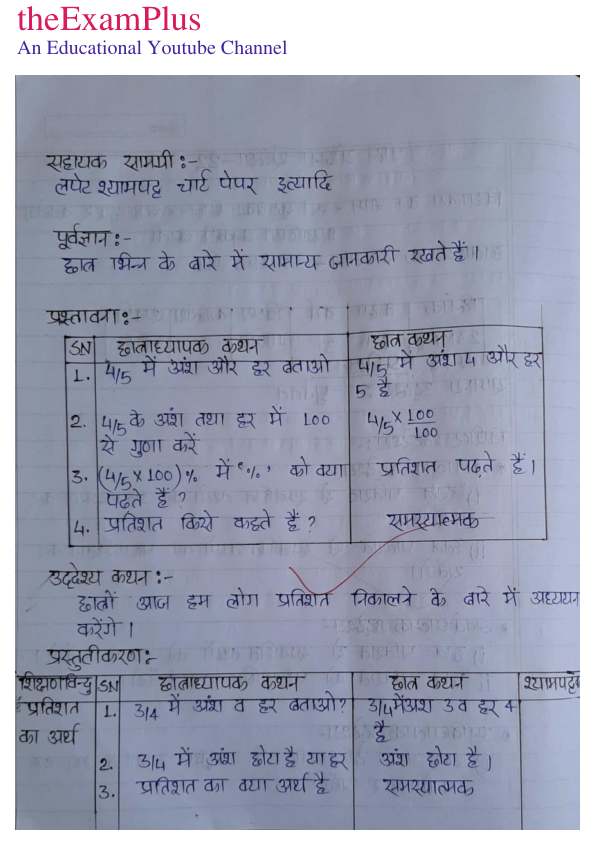 theExamPlus
An Educational Youtube Channel
सहायक सामग्री :-
लपेट श्यामपट्ट चार्ट पेपर इत्यादि
पूर्वज्ञान :-
छात्र भिन्न के बारे में सामान्य जानकारी रखते हैं।
प्रस्तावना :-
SN छात्राध्यापक कथन छात्र कथन
1. 4/5 में अंश और हर बताओ 4/5 में अंश 4 और हर
5 है
2. 4/5 के अंश तथा हर में 100 4/5 × 100/100
से गुणा करें
3. (4/5 × 100)% में '%' को क्या प्रतिशत पढ़ते हैं।
पढ़ते हैं?
4. प्रतिशत किसे कहते हैं? समस्यात्मक
उद्देश्य कथन :-
छात्रों आज हम लोग प्रतिशत निकालने के बारे में अध्ययन
करेंगे।
प्रस्तुतीकरण :-
शिक्षणविन्दु SN छात्राध्यापक कथन छात्र कथन श्यामपट्ट
प्रतिशत 1. 3/4 में अंश व हर बताओ? 3/4 में अंश 3 व हर 4
का अर्थ है
2. 3/4 में अंश छोटा है या हर अंश छोटा है।
3. प्रतिशत का क्या अर्थ है समस्यात्मक